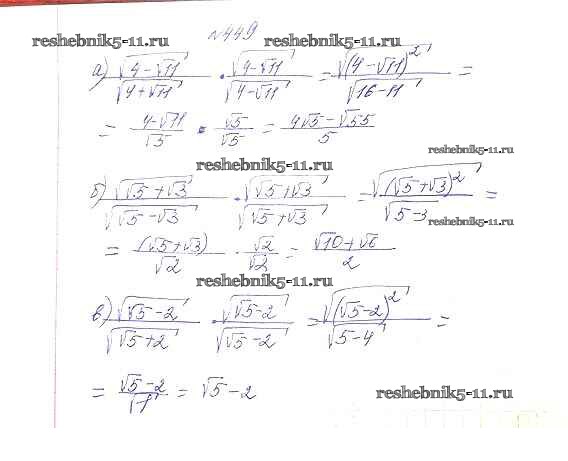 №449
reshebnik5-11.ru reshebnik5-11.ru
а) √(4-√11)/√(4+√11) · √(4-√11)/√(4-√11) = √((4-√11)²)/√(16-11) =
= (4-√11)/√5 · √5/√5 = (4√5-√55)/5
reshebnik5-11.ru
reshebnik5-11.ru
б) √(√5+√3)/√(√5-√3) · √(√5+√3)/√(√5+√3) = √((√5+√3)²)/√(5-3) =
reshebnik5-11.ru
= (√5+√3)/√2 · √2/√2 = (√10+√6)/2
reshebnik5-11.ru
в) √(√5-2)/√(√5+2) · √(√5-2)/√(√5-2) = √((√5-2)²)/√(5-4) =
= (√5-2)/√1 = √5-2
reshebnik5-11.ru